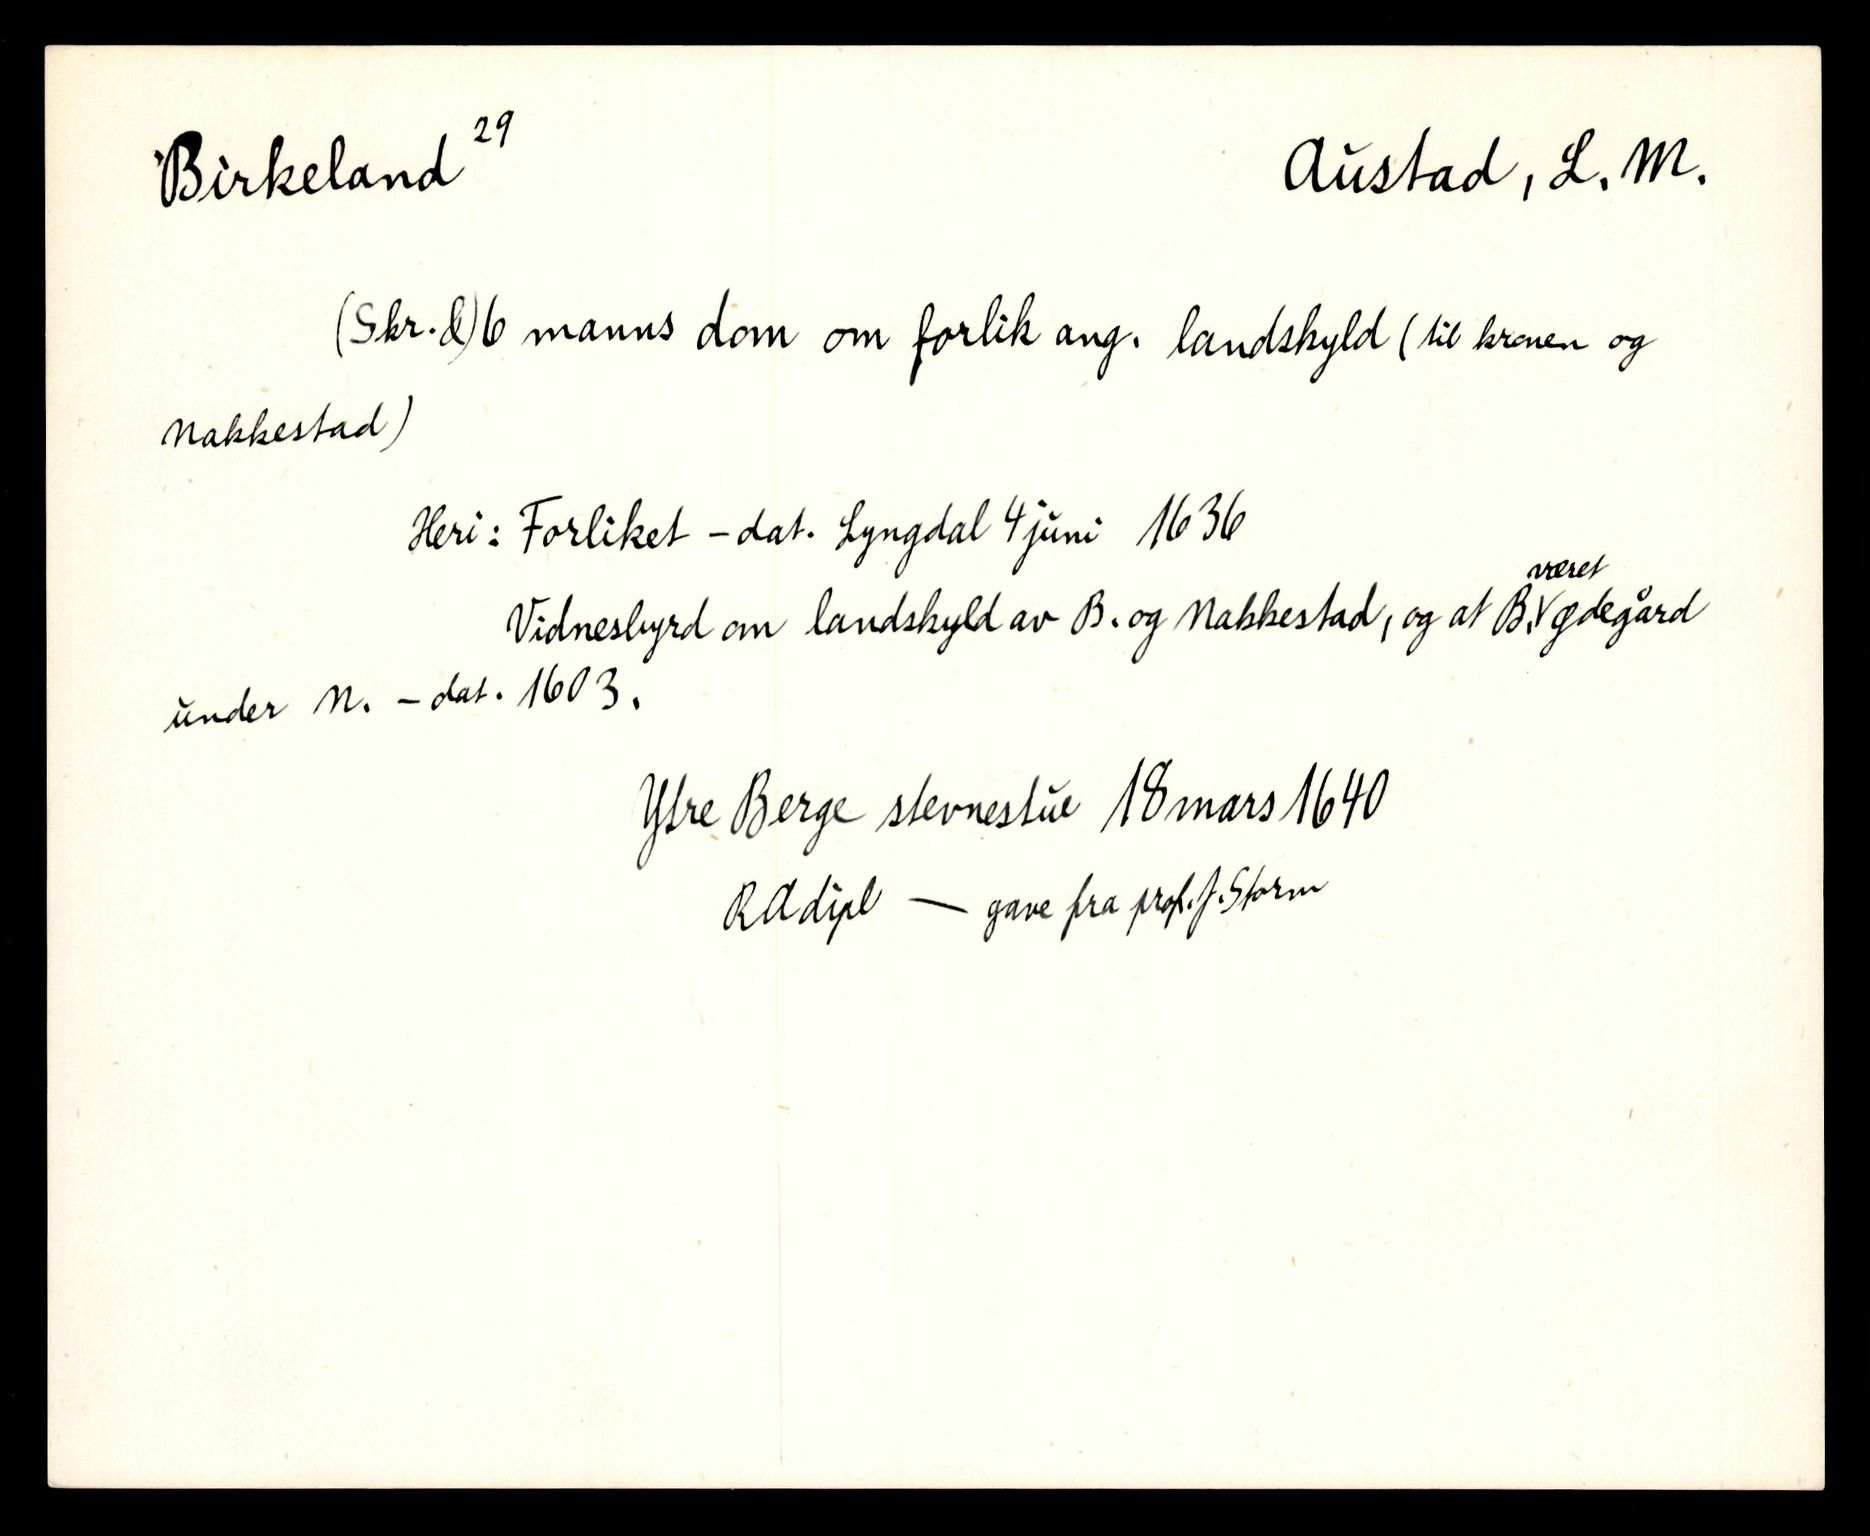 Birkeland 29 Austad, L. M.
(Skr. &) 6 manns dom om forlik ang. landskyld (til kronen og
Nakkestad)
Heri: Forliket - dat. Lyngdal 4 juni 1636
Vidnesbyrd om landskyld av B. og Nakkestad, og at B. været ødegård
under N. - dat. 1603.
Ytre Berge stevnestue 18 mars 1640
RA dipl — gave fra prof. J. Storm